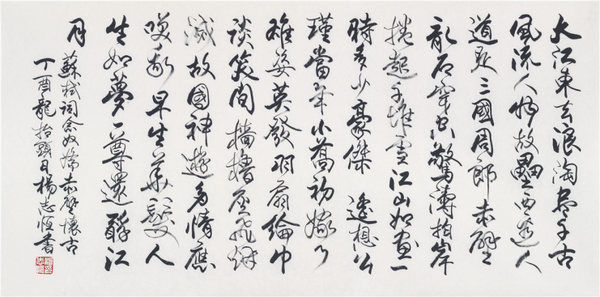 大江東去浪淘盡千古
風流人物故壘西邊人
道是三國周郎赤壁
亂石穿空驚濤拍岸
捲起千堆雪江山如畫一
時多少豪傑 遙想公
瑾當年小喬初嫁了
雄姿英發羽扇綸巾
談笑間檣櫓灰飛煙
滅故國神遊多情應
笑我早生華髮人
生如夢一尊還酹江
月
蘇軾詞念奴嬌赤壁懷古
丁酉龍抬頭日楊志恒書